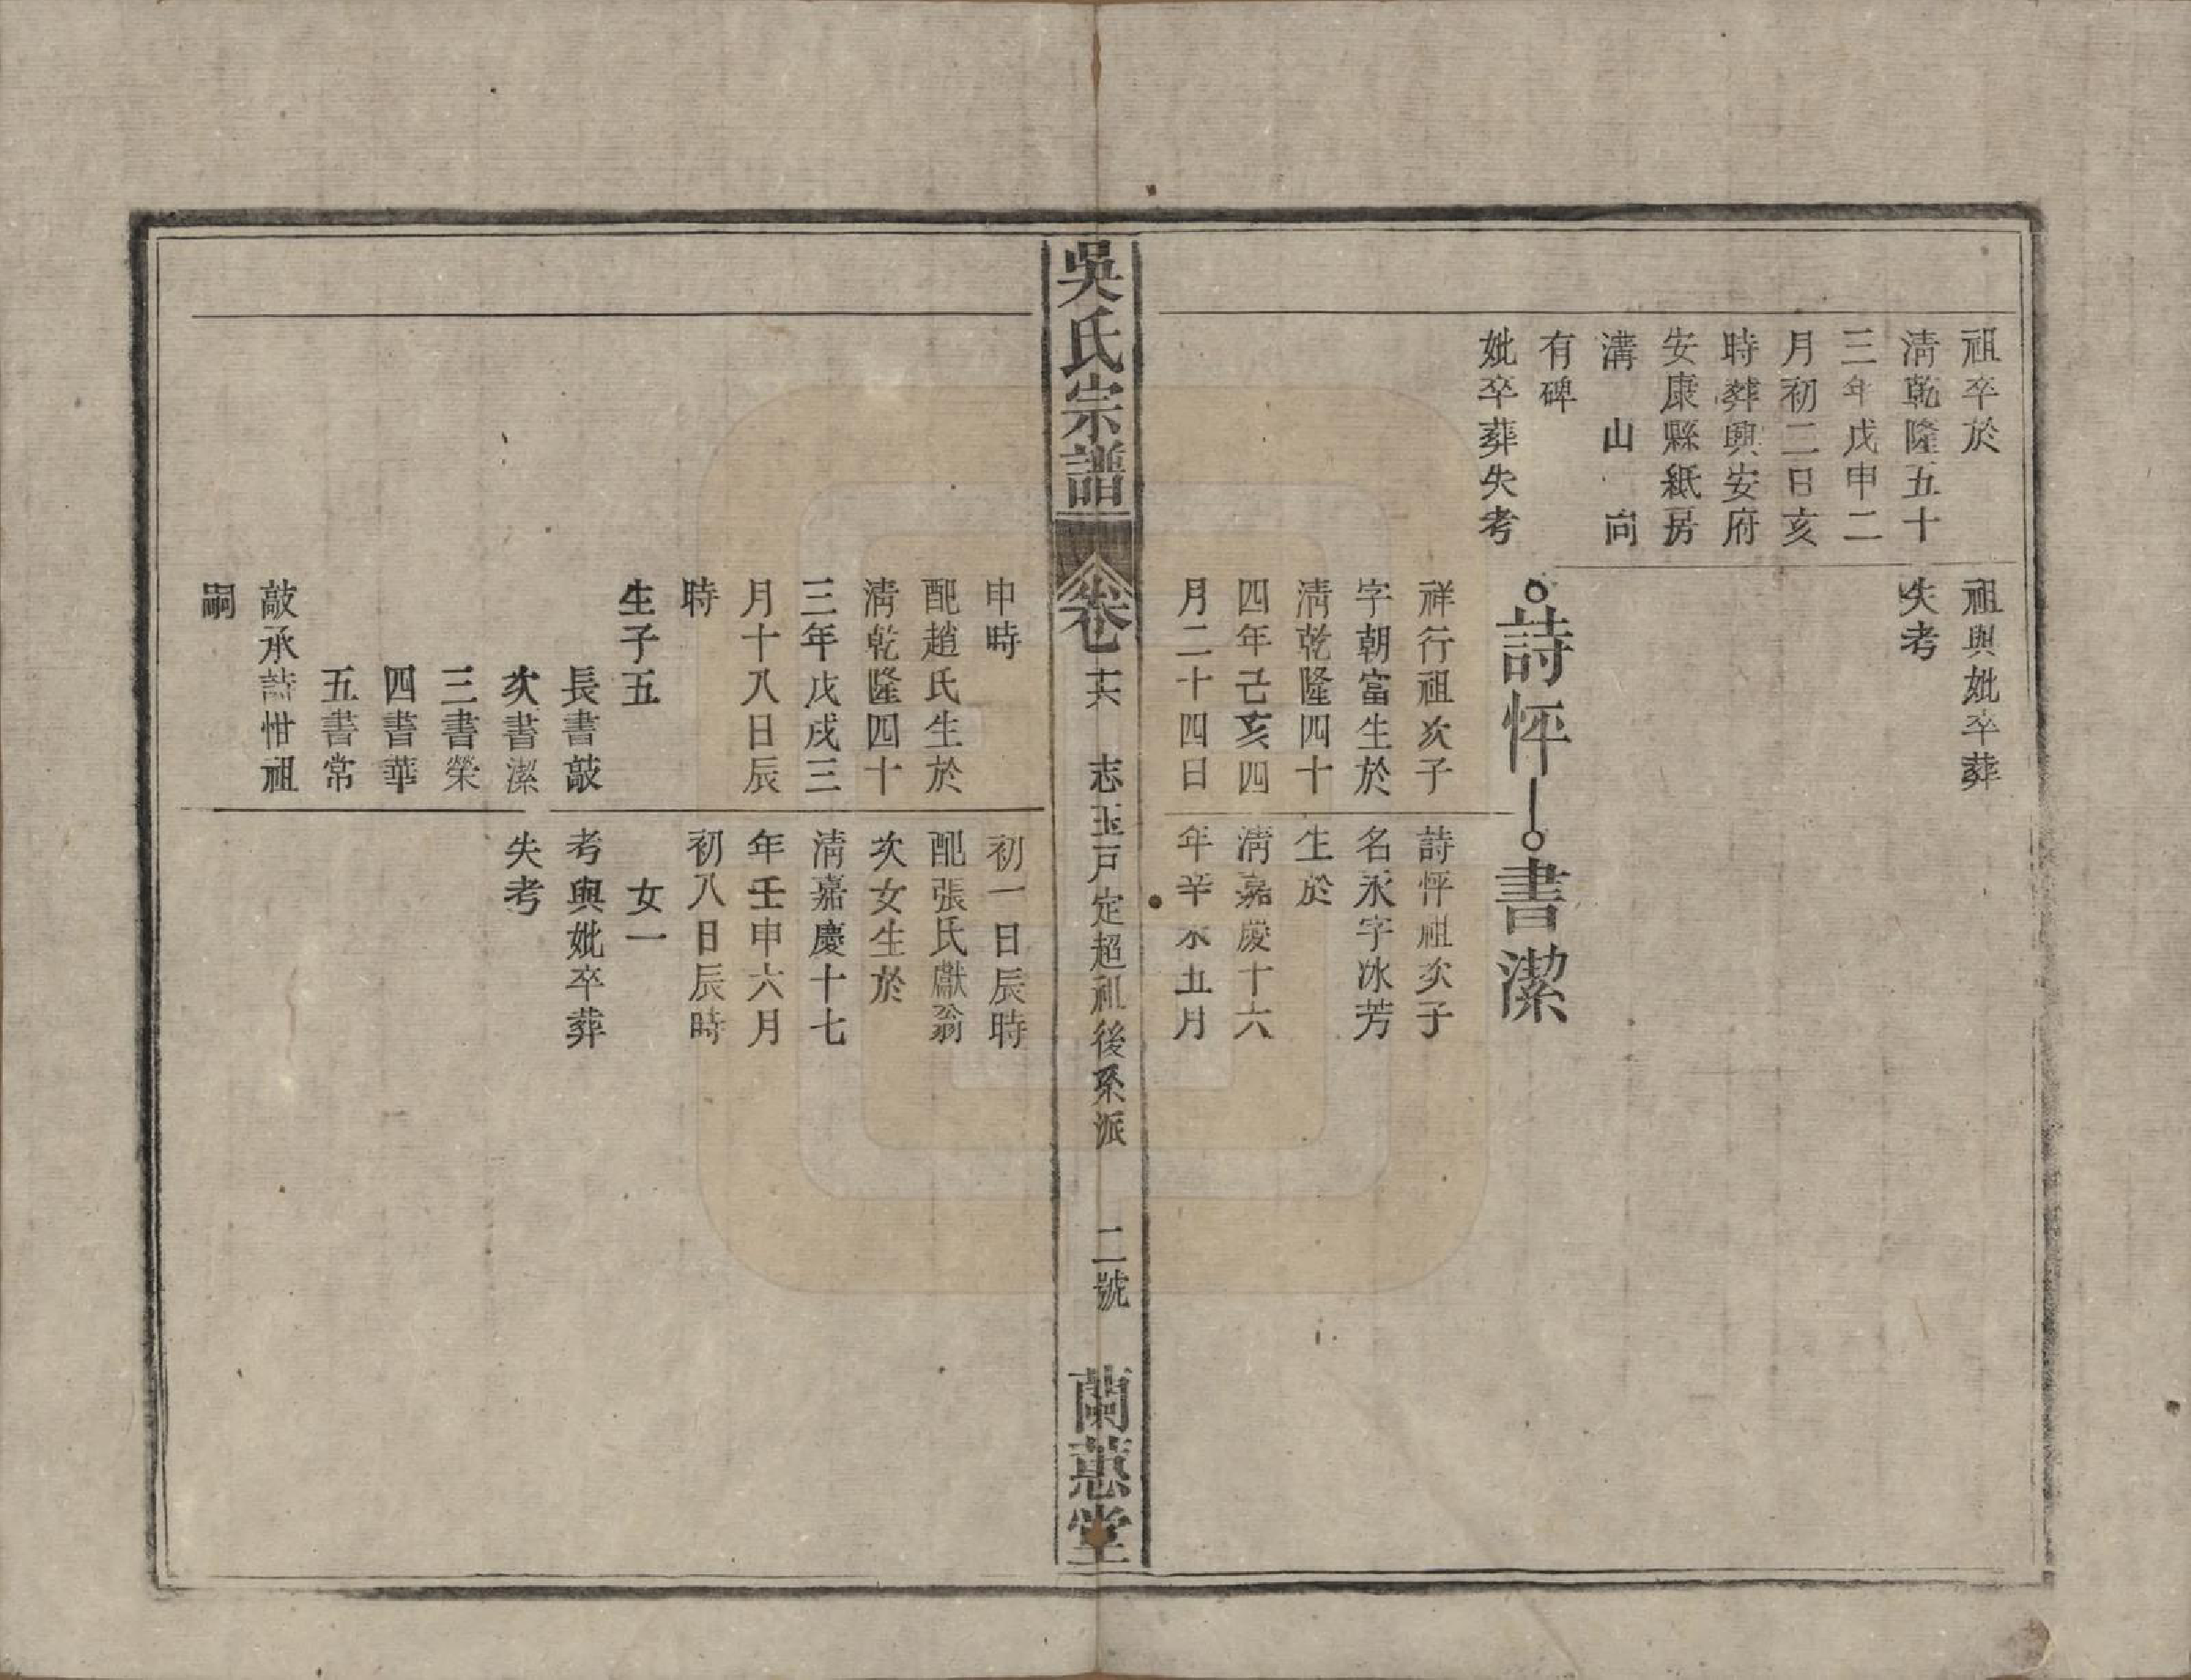 祖卒於
清乾隆五十
三年戊申二
月初二日亥
時葬興安府
安康縣紙房
溝　山　向
有碑
妣卒葬失考
祖與妣卒葬
失考
詩怦
書潔
祥行祖次子
字朝富生於
清乾隆四十
四年己亥四
月二十四日
詩怦祖次子
名永字冰芳
生於
清嘉慶十六
年辛未五月
吳氏宗譜
卷七
十六
志玉戸定超祖後系派
二號
蘭蕙堂
申時
配趙氏生於
清乾隆四十
三年戊戌三
月十八日辰
時
生子五
長書敲
次書潔
三書榮
四書華
五書常
敲承詩怈祖
嗣
初一日辰時
配張氏獻翁
次女生於
清嘉慶十七
年壬申六月
初八日辰時
女一
考與妣卒葬
失考